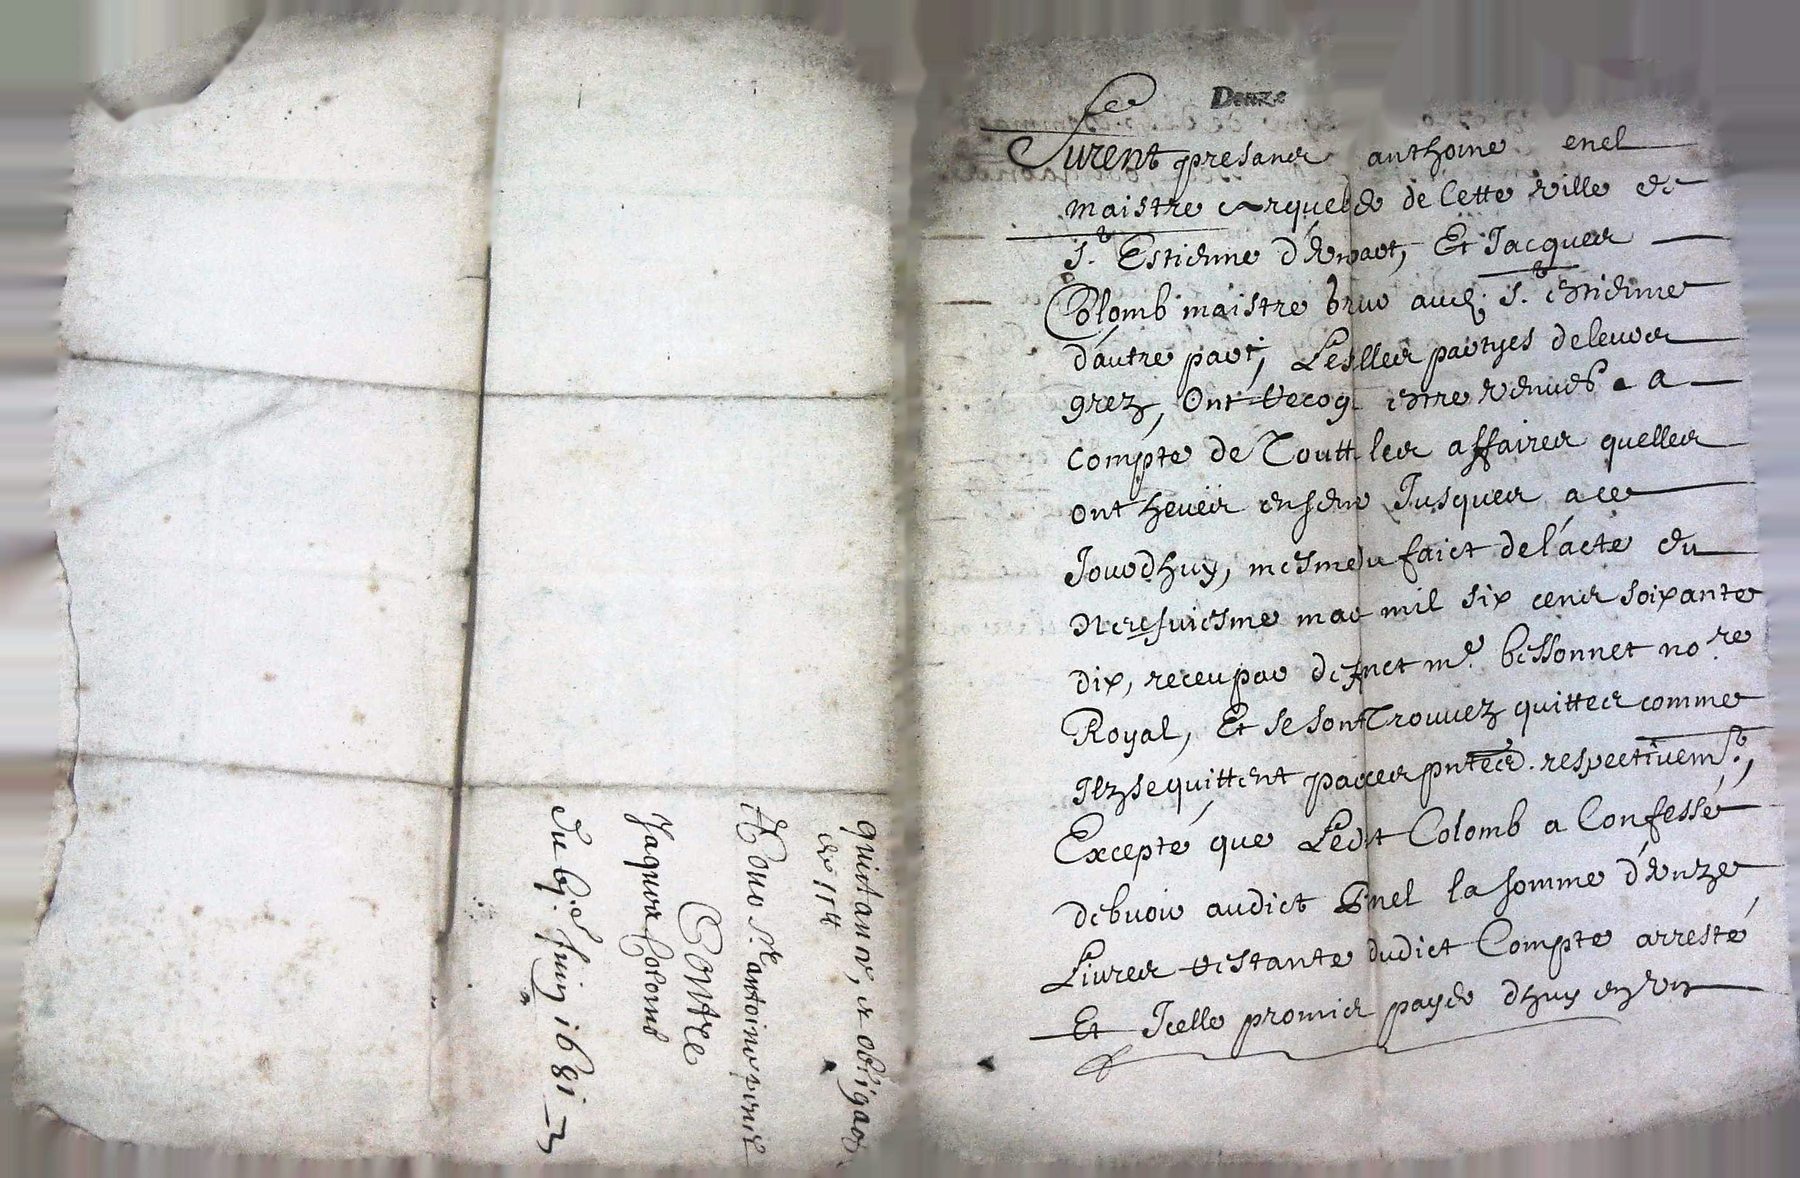 quictance, et obligaon
de 11 lt
Pour Sr. antoine
Contre
Jaques Colomb
Du 6e. Juin 1681
Furent presanes anthoine enel
maistre de Cette ville de
St. Estienne d'Unpart, Et Jacques
Colomb maistre audt. St. estienne
d'autre part, Lesslles partyes de leurs
grez, Ont recog. estre venues a
Compte de Toutt. les affaires quelles
ont heues ensem Jusques a ce
Jourdhuy, mesme du faict de l'acte du
mar mil six cens soixante
dix, receu par defnct me. bessonnet nore.
Royal, Et se sont Trouvez quittes comme
Ilz se quittent par ces pntes. respectivemt.,
Excepté que Ledt Colomb a Confessé
debvoir audict Enel la somme d'unze
Livres restante dudict Compte arresté
Et Icelle promis payer dhuy en un